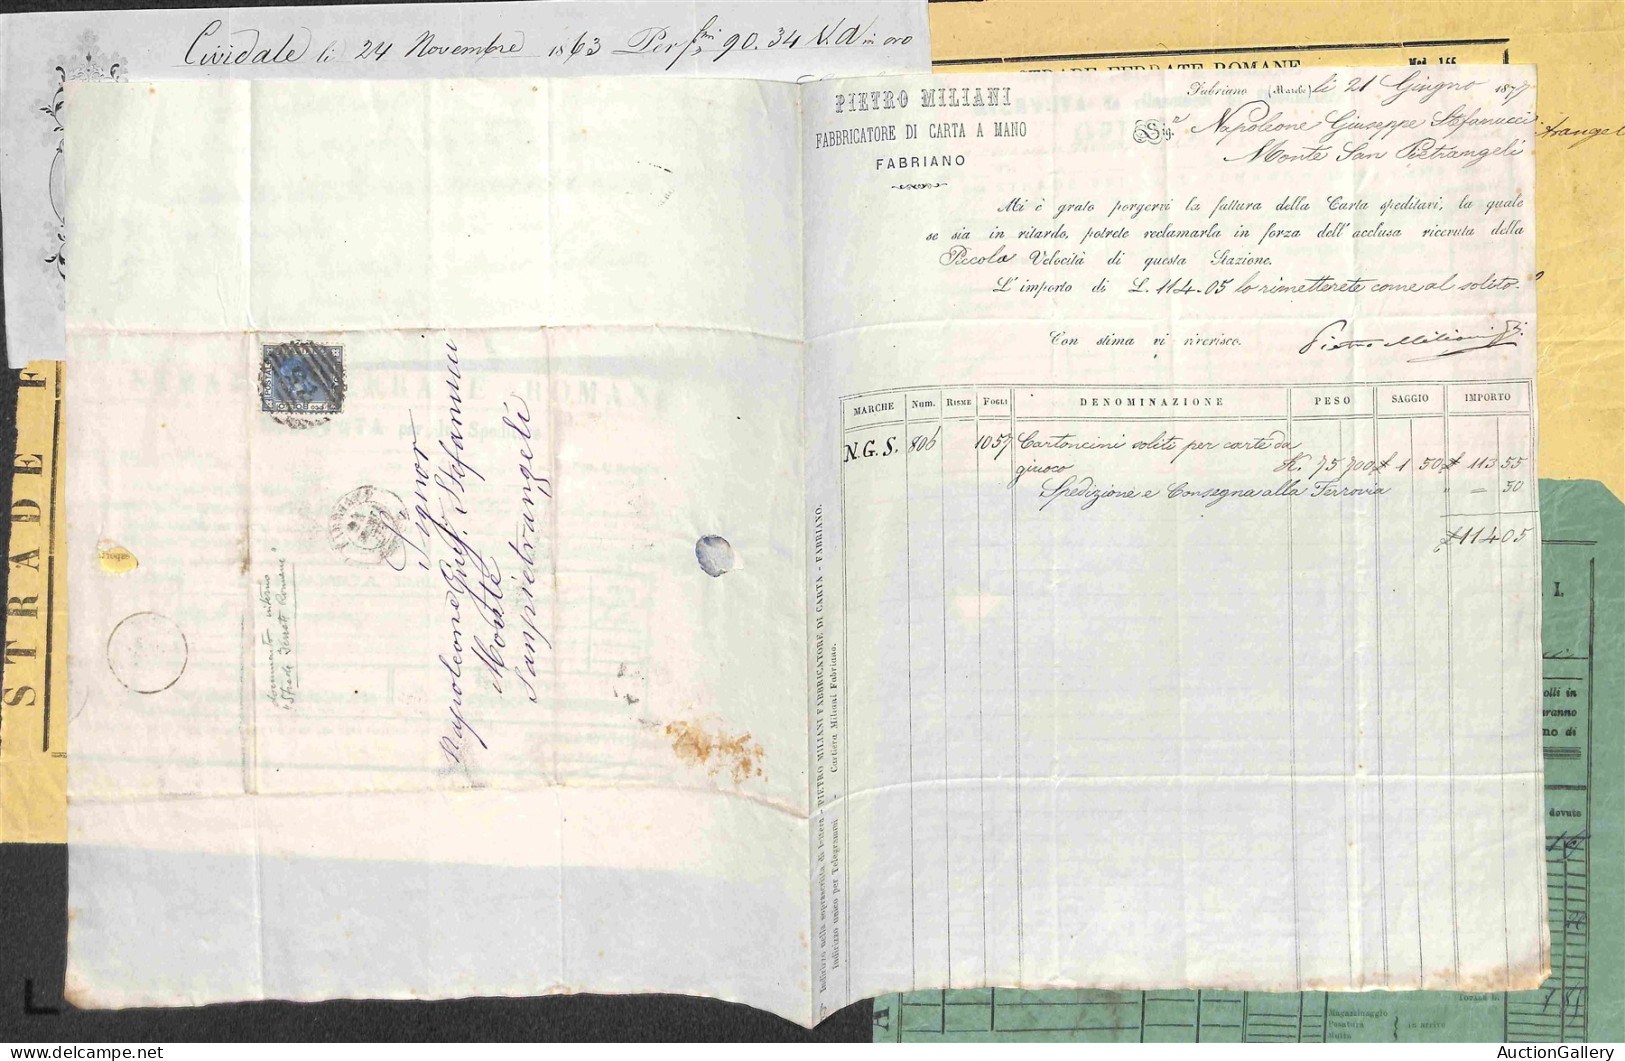 Cividale li 24 Novembre 1863 Per 90.34 V.A in oro
STRADE FERRATE ROMANE
Mod. 155
PIETRO MILIANI
FABBRICATORE DI CARTA A MANO
FABRIANO
Fabriano (Marche) li 21 Giugno 1877
Sig.r Napoleone Giuseppe Stefanucci
Monte San Pietrangeli
Mi è grato porgervi la fattura della Carta speditavi, la quale
se sia in ritardo, potrete reclamarla in forza dell'acclusa ricevuta della
Piccola Velocità di questa Stazione.
L'importo di L. 114.05 lo rimetterete come al solito.
Con stima vi riverisco.
Pietro Miliani
MARCHE Num. Risme Fogli DENOMINAZIONE PESO SAGGIO IMPORTO
N.G.S. 806 1057 Cartoncini soliti per carte da
giuoco K. 75 700 £ 1 50 £ 113 55
Spedizione e Consegna alla Ferrovia " = 50
£ 114 05
Indirizzo sulla soprascritta di lettera - PIETRO MILIANI FABBRICATORE DI CARTA - FABRIANO.
Indirizzo unico per Telegrammi - Cartiera Miliani Fabriano.
Signor
Napoleone Gius. Stefanucci
Monte
Sanpietrangeli
documento interno
Strade Ferrate Romane
STRADE
I.
olli in
aranno
no di
dovuto
Magazzinaggio
in arrivo
AuctionGallery